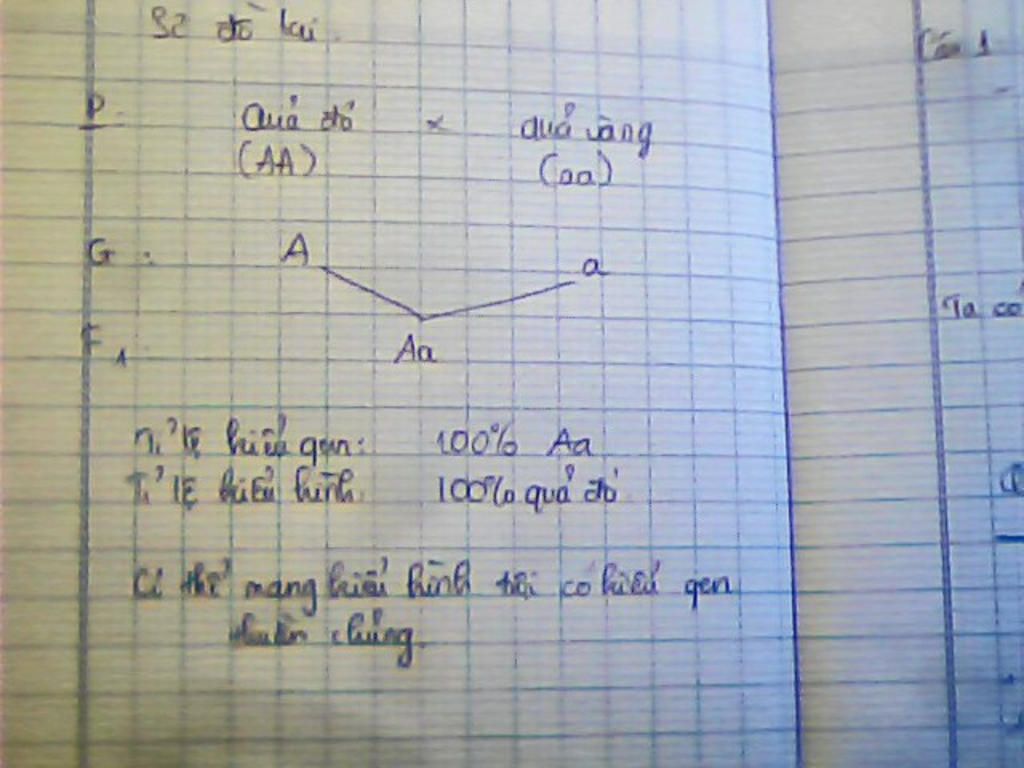 Sơ đồ lai.
P: Quả đỏ × quả vàng
(AA) (aa)
G: A a
F1: Aa
Tỉ lệ kiểu gen: 100% Aa
Tỉ lệ kiểu hình: 100% quả đỏ
thể mang kiểu hình có kiểu gen
thuần chủng.
Câu 1
Ta có